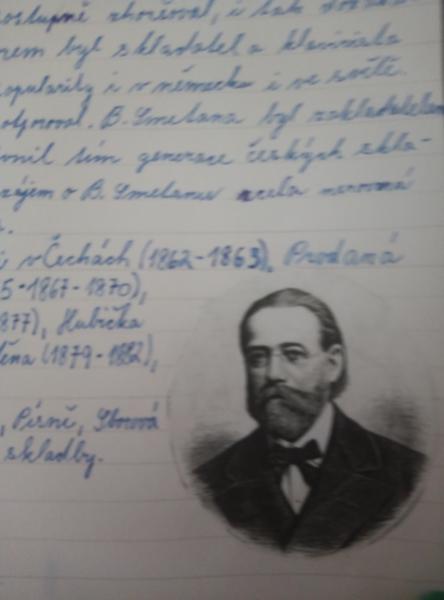 postupně zhoršoval, i tak
nem byl skladatel a klavírista
popularity i v německu i ve světě.
B. Smetana byl zakladatelem
vnil tím generace českých skla-
zájem o B. Smetanu zcela
v Čechách (1862-1863), Prodaná
5-1867-1870),
877), Hubička
ěna (1879-1882),
, Písně, Sborová
skladby.